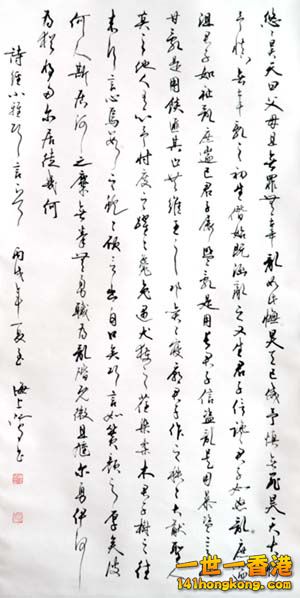 悠々昊天曰父母且無罪無辜亂如此幠昊天已威予慎無罪昊天大幠
予慎無辜亂之初生僭始既涵亂之又生君子信讒君子如怒亂庶遄
沮君子如祉亂庶遄已君子屢盟亂是用長君子信盜亂是用暴盜言孔
甘亂是用餤匪其止共維王之邛奕々寢廟君子作之秩々大猷聖人
莫之他人有心予忖度之躍々毚兔遇犬獲之荏染柔木君子樹之往
來行言心焉數之蛇々碩言出自口矣巧言如簧顏之厚矣彼
何人斯居河之麋無拳無勇職為亂階既微且尰爾勇伊何
為猶將多爾居徒幾何
詩經小雅巧言 丙戌年夏 海上
一世一香港
141hongkong.com